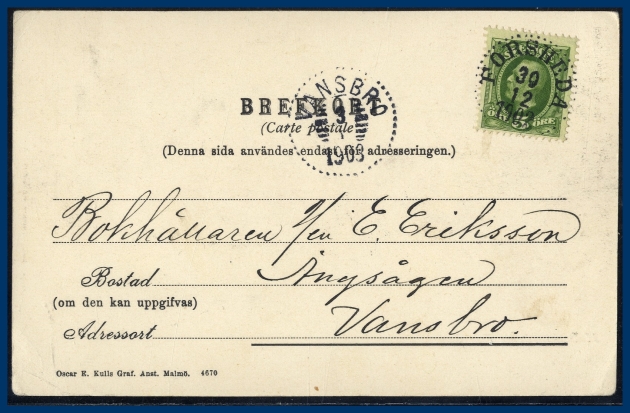 FORSHEDA
30
12
1902
ÖRE
VANSBRO
3
1
1903
BREFKORT
(Carte postale)
(Denna sida användes endast för adresseringen.)
Bokhållaren E. Eriksson
Bostad Ångsågen
(om den kan uppgifvas)
Adressort Vansbro.
Oscar E. Kulls Graf. Anst. Malmö. 4670